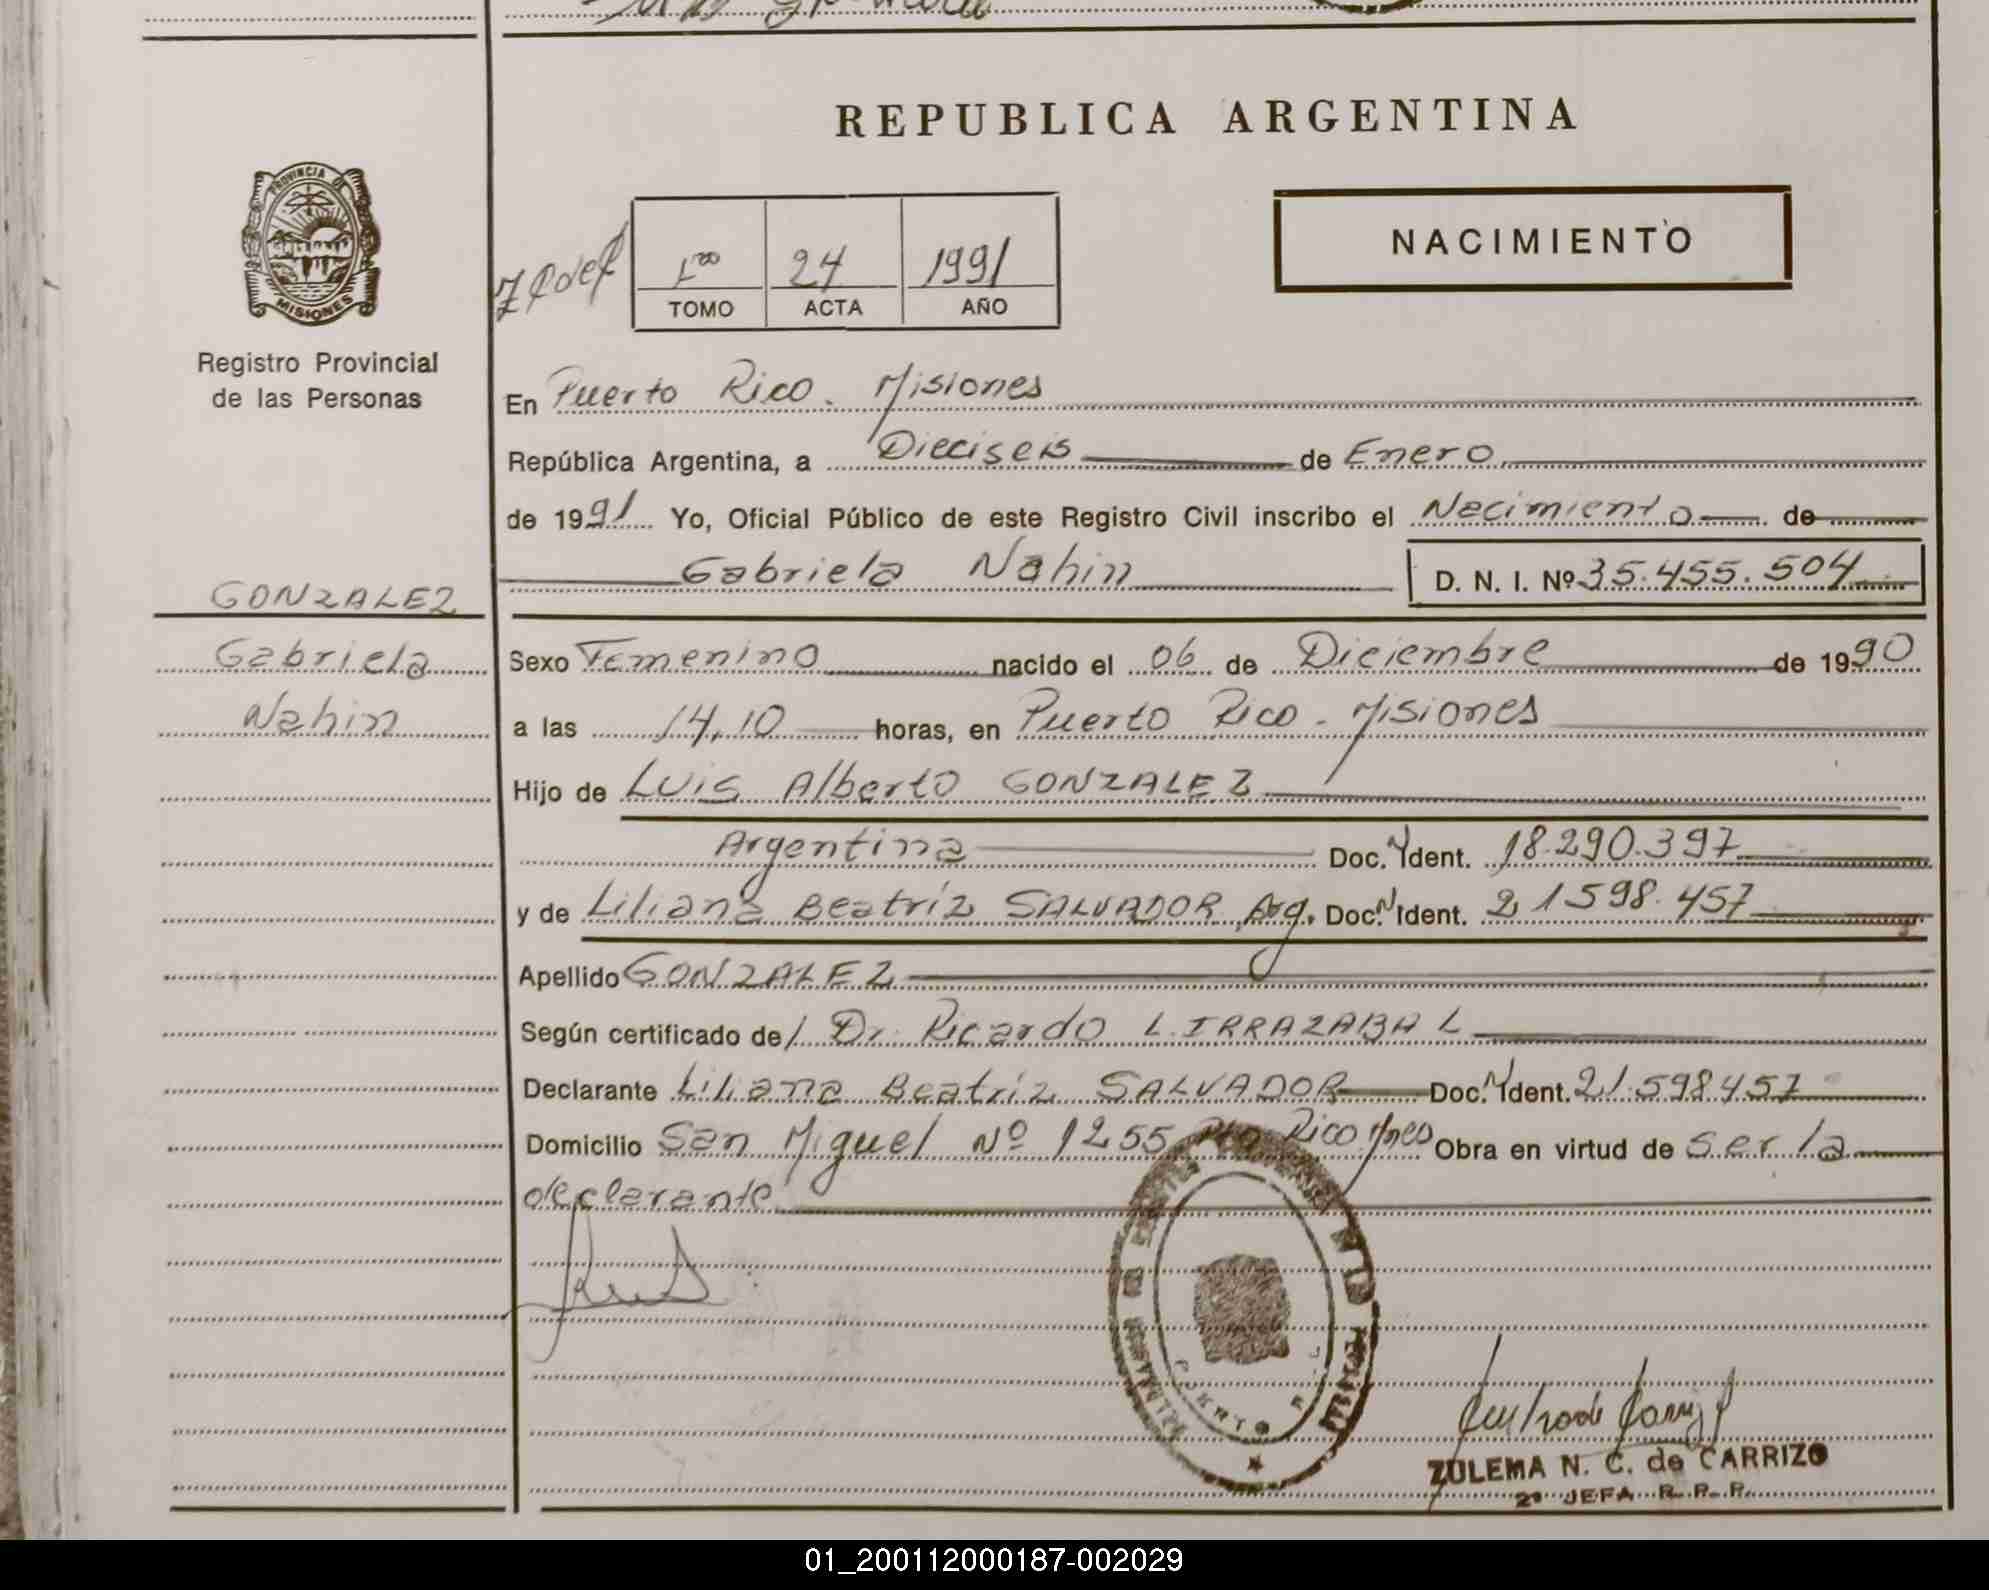 REPUBLICA ARGENTINA
PROVINCIA DE
MISIONES
Registro Provincial
de las Personas
NACIMIENTO
24 1991
TOMO ACTA AÑO
En Puerto Rico. Misiones
República Argentina, a Dieciseis de Enero
de 1991 Yo, Oficial Público de este Registro Civil inscribo el Nacimiento de
Gabriela Nahin D. N. I. Nº 35.455.504
GONZALEZ
Gabriela
Nahin
Sexo Femenino nacido el 06 de Diciembre de 1990
a las 14,10 horas, en Puerto Rico - Misiones
Hijo de Luis Alberto GONZALEZ
Argentina Doc. N Ident. 18.290.397
y de Liliana Beatríz SALVADOR Arg. Doc. N Ident. 21598.457
Apellido GONZALEZ
Según certificado de / Dr. Ricardo L. IRRAZABAL
Declarante Liliana Beatríz SALVADOR Doc. N Ident. 21.598.457
Domicilio San Miguel Nº 1255 Pto Rico Mnes Obra en virtud de ser la
declarante
PUERTO RICO
ZULEMA N. C. de CARRIZO
2ª JEFA R. P. P.
01_200112000187-002029